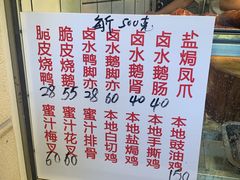 500克
脆皮烧鸭 28
脆皮烧鹅 55
卤水鸭脚亦 28
卤水鹅脚亦 60
卤水鹅肾 40
卤水鹅肠 40
盐焗凤爪
蜜汁梅叉 60
蜜汁花叉 60
蜜汁排骨
本地白切鸡
本地盐焗鸡
本地手撕鸡
本地豉油鸡 150